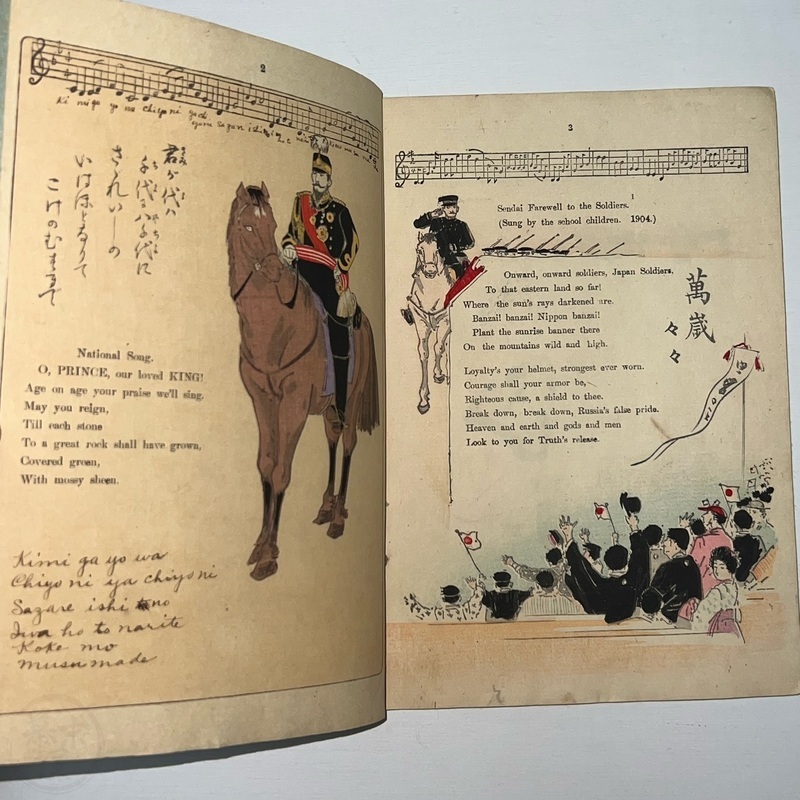 2
Ki mi ga yo wa chi yo ni ya chi
君が代ハ
千代ニ八千代に
さゞれいしの
いはほとなりて
こけのむすまで
National Song.
O, PRINCE, our loved KING!
Age on age your praise we'll sing.
May you reign,
Till each stone
To a great rock shall have grown,
Covered green,
With mossy sheen.
Kimi ga yo wa
Chiyo ni ya chiyo ni
Sazare ishi no
Iwa ho to narite
Koke mo
musu made
3
1
Sendai Farewell to the Soldiers.
(Sung by the school children. 1904.)
Onward, onward soldiers, Japan Soldiers,
To that eastern land so far!
Where the sun's rays darkened are.
Banzai! banzai! Nippon banzai!
Plant the sunrise banner there
On the mountains wild and high.
Loyalty's your helmet, strongest ever worn.
Courage shall your armor be,
Righteous cause, a shield to thee.
Break down, break down, Russia's false pride.
Heaven and earth and gods and men
Look to you for Truth's release.
萬歳
々々